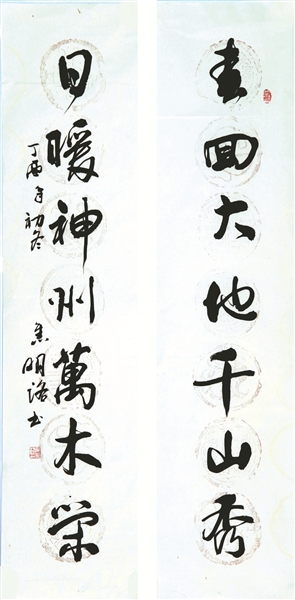 春回大地千山秀
日暖神州萬木榮
丁酉年初冬
焦明洛书